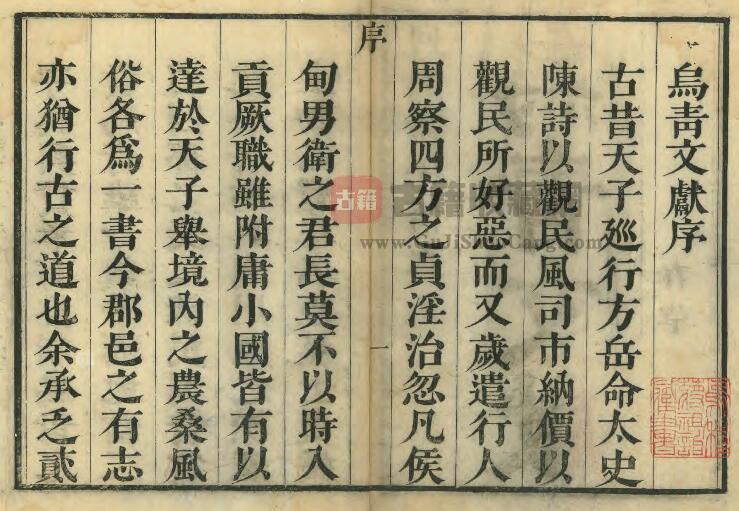 烏青文獻序
古昔天子廵行方岳命太史
陳詩以觀民風司市納價以
觀民所好惡而又歲遣行人
周察四方之貞淫治忽凡侯
序
一
甸男衛之君長莫不以時入
貢厥職雖附庸小國皆有以
達於天子舉境內之農桑風
俗各爲一書今郡邑之有志
亦猶行古之道也余承乏貳
古籍
www.GuJiShuCang.com